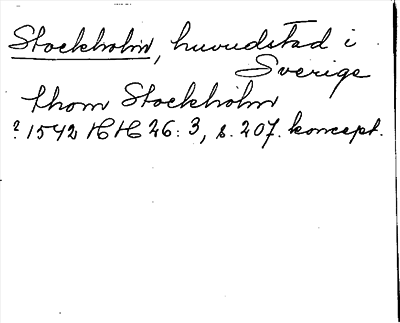 Stockholm, huvudstad i
Sverige
thom Stockholm
? 1542 HH 26: 3, s. 207. koncept.